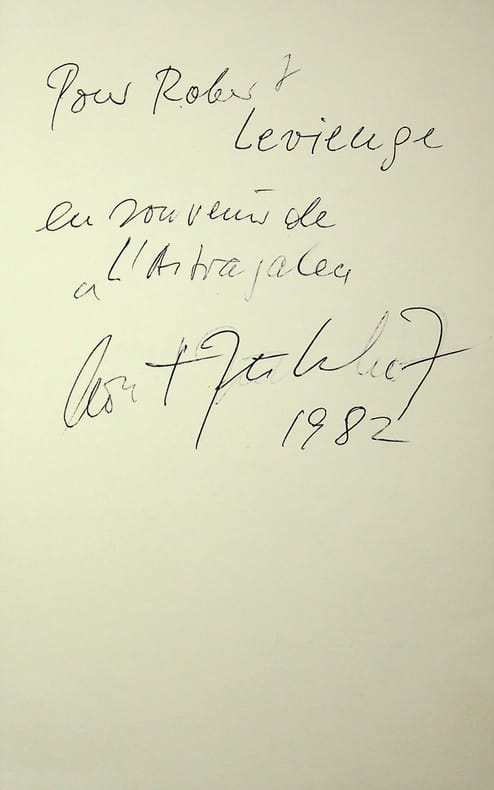 Pour Robert
Levienge
en souvenir de
a L'Astragalen
1982